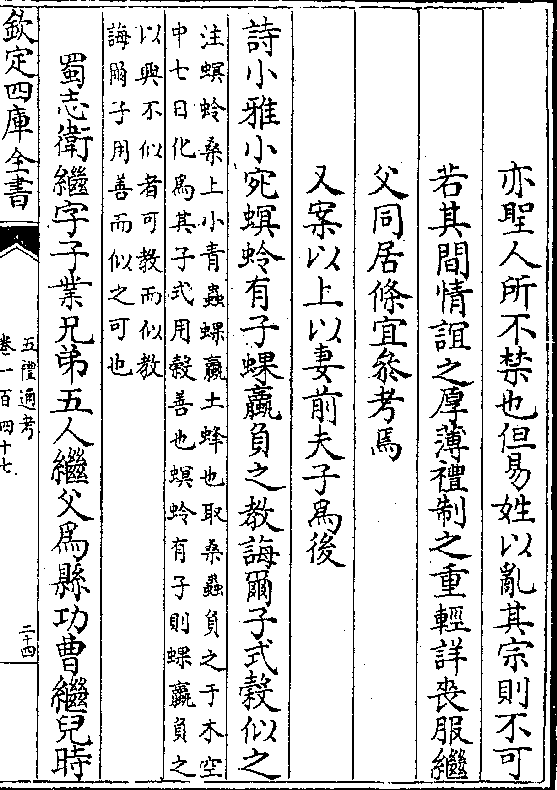 亦聖人所不禁也但易姓以亂其宗則不可
若其間情誼之厚薄禮制之重輕詳喪服繼
父同居條宜叅考焉
又案以上以妻前夫子為後
詩小雅小宛螟蛉有子蜾蠃負之教誨爾子式榖似之
注螟蛉桑上小青蟲蜾蠃土蜂也取桑蟲負之于木空
中七日化為其子式用榖善也螟蛉有子則蜾蠃負之
以興不似者可教而似教
誨爾子用善而似之可也
蜀志衛繼字子業兄弟五人繼父為縣功曹繼兒時
欽定四庫全書
五禮通考
卷一百四十七
二十四